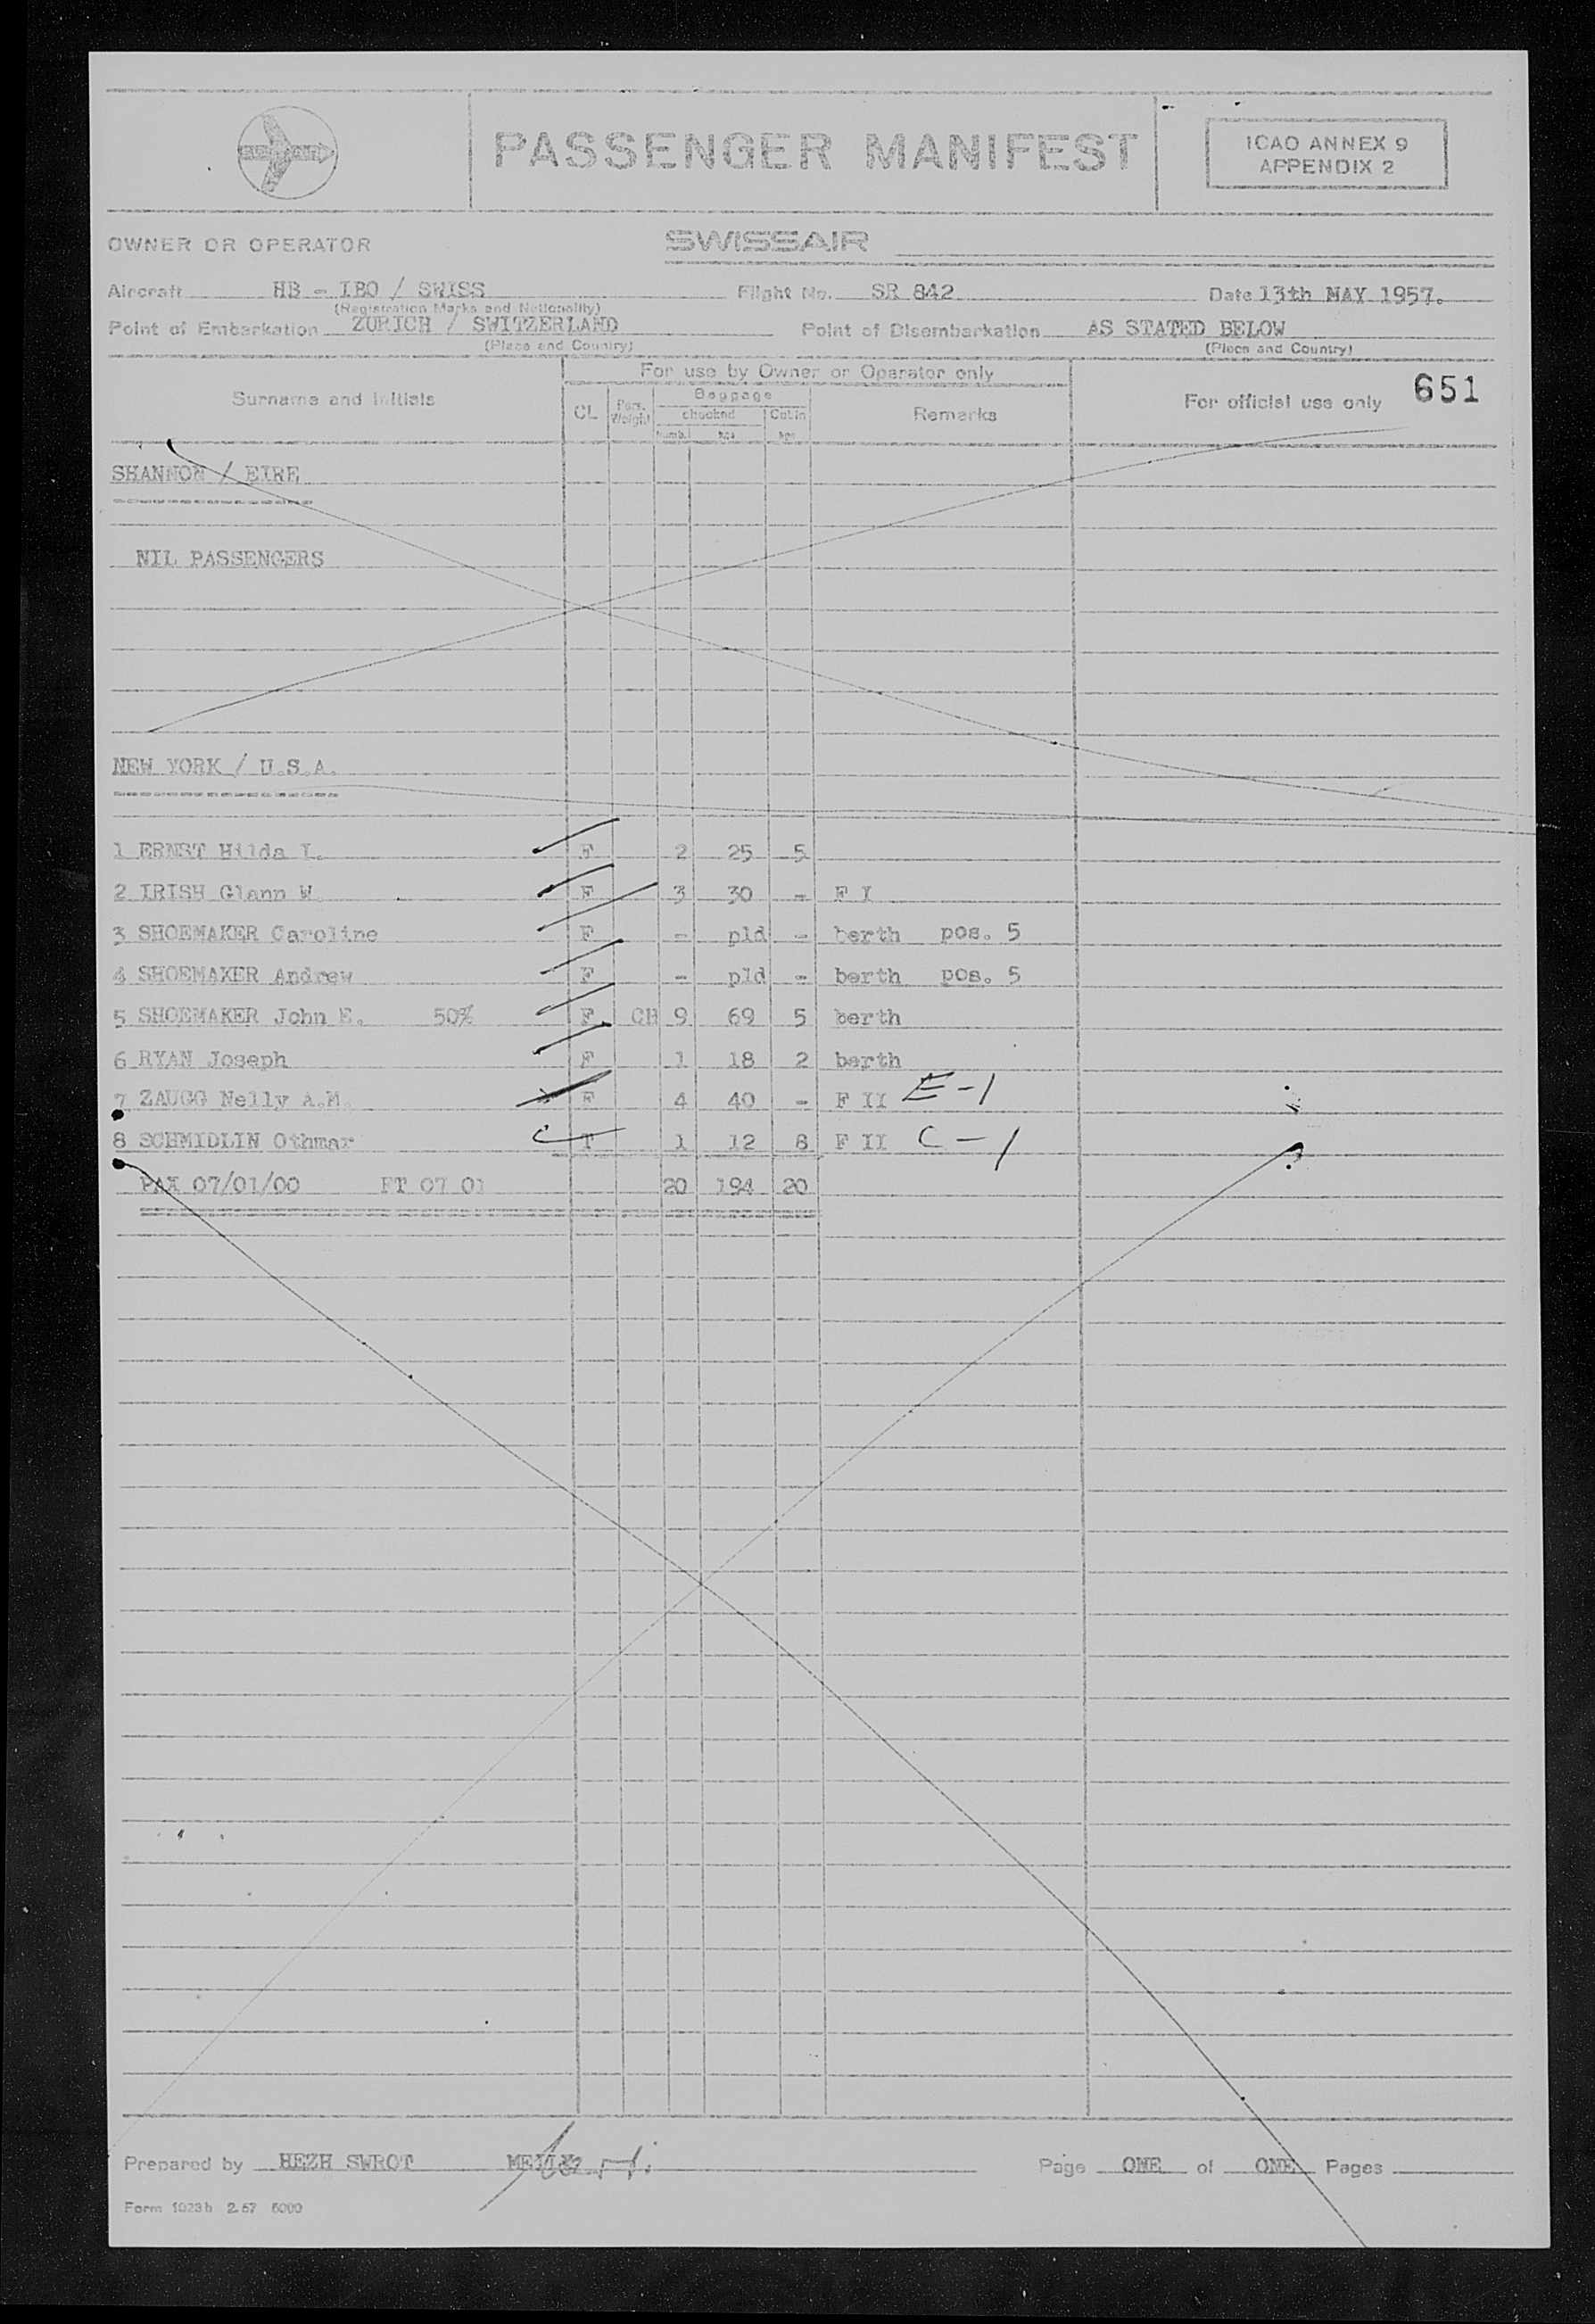 SWISSAIR
PASSENGER MANIFEST
ICAO ANNEX 9
APPENDIX 2
OWNER OR OPERATOR SWISSAIR
Aircraft HB - IBO / SWISS Flight No. SR 842 Date 13th MAY 1957.
(Registration Marks and Nationality)
Point of Embarkation ZURICH / SWITZERLAND Point of Disembarkation AS STATED BELOW
(Place and Country) (Place and Country)
For use by Owner or Operator only
651
Surname and Initials CL Pers. Weight Baggage Remarks For official use only
checked Cabin
Numb. kgs kgs
SHANNON / EIRE
NIL PASSENGERS
NEW YORK / U.S.A.
1 ERNST Hilda I. F 2 25 5
2 IRISH Glann W. F 3 30 - F I
3 SHOEMAKER Caroline F - pld - berth pos. 5
4 SHOEMAKER Andrew F - pld - berth pos. 5
5 SHOEMAKER John E. 50% F CH 9 69 5 berth
6 RYAN Joseph F 1 18 2 berth
7 ZAUGG Nelly A.M. F 4 40 - F II E-1
8 SCHMIDLIN Othmar T 1 12 8 F II C-1
PAX 07/01/00 FT 07 01 20 194 20
Prepared by HEZH SWROT Page ONE of ONE Pages
Form 1023h 2.57 5000